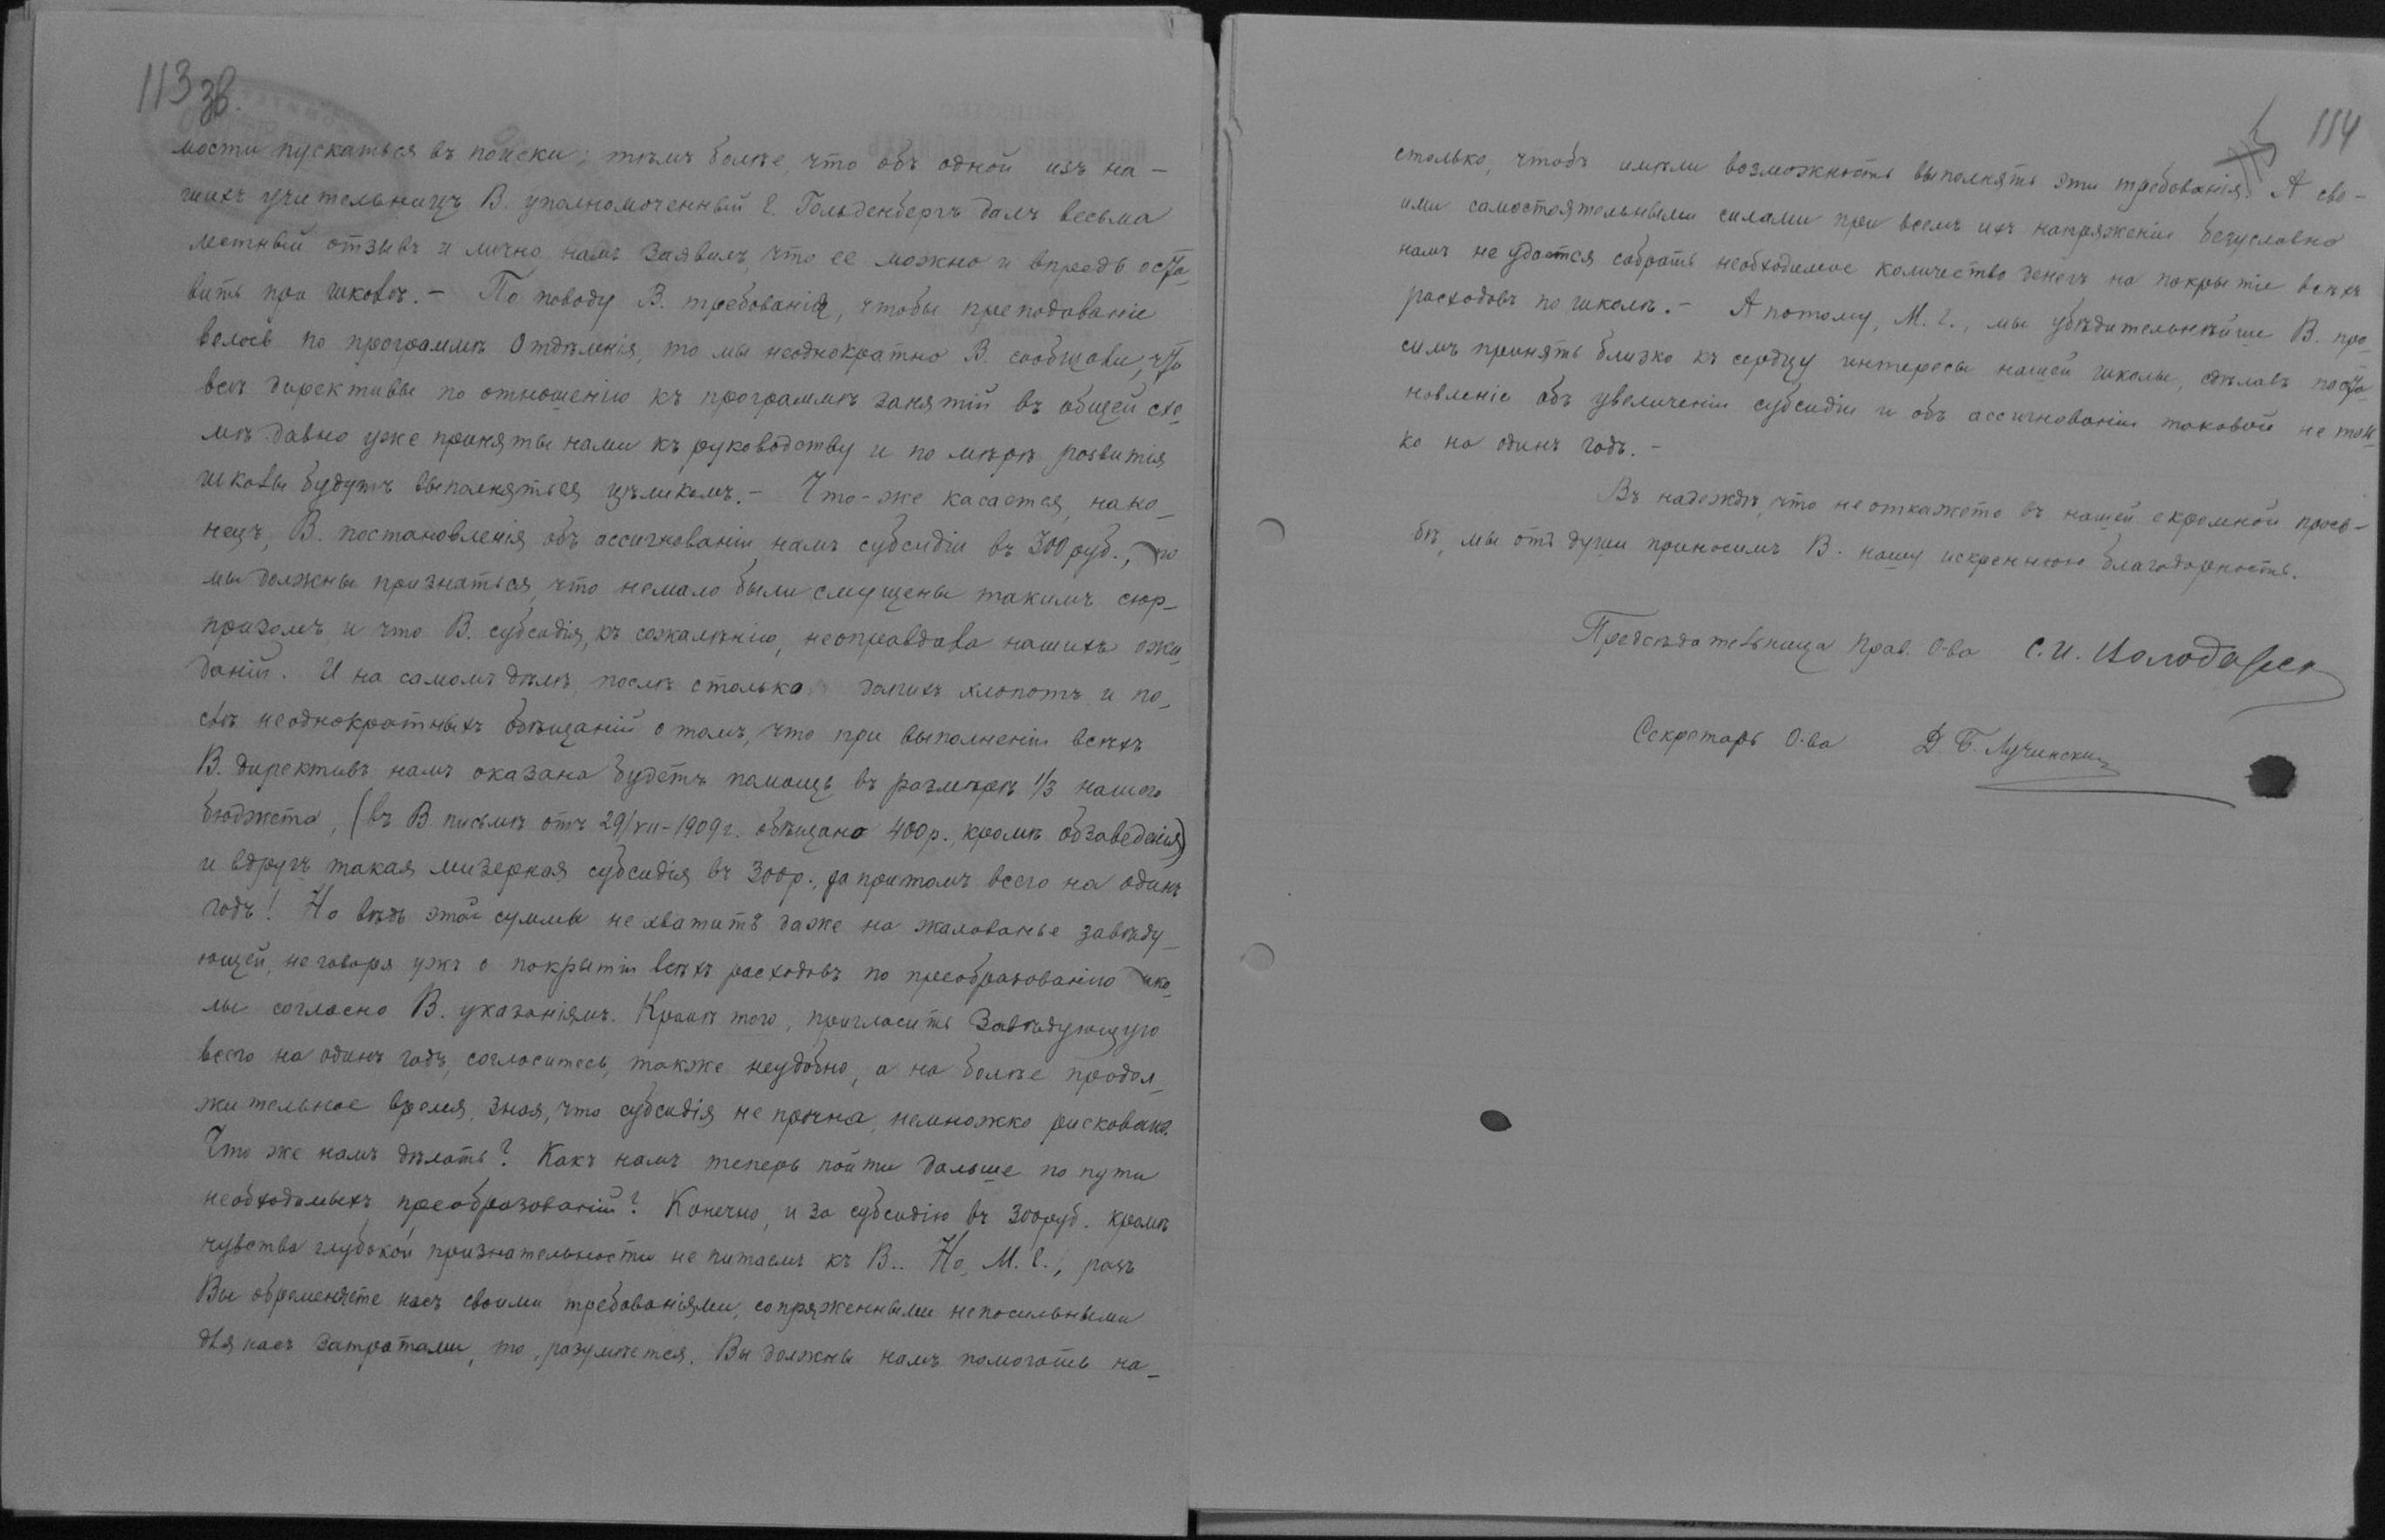 113 зв.
мости пускаться въ поиски; тѣмъ болѣе, что объ одной изъ на-
шихъ учительницъ В. уполномоченный г. Гольденбергъ далъ весьма
лестный отзывъ и лично намъ заявилъ, что ее можно и впредь оста-
вить при школѣ. - По поводу В. требованія, чтобы преподаваніе
велось по программѣ Отдѣленія, то мы неоднократно В. сообщали, что
всѣ директивы по отношенію къ программѣ занятій въ общей схе-
мѣ давно уже приняты нами къ руководству и по мѣрѣ развитія
школы будутъ выполняться цѣликомъ. - Что-же касается, нако-
нецъ, В. постановленія объ ассигнованіи намъ субсидіи въ 300 руб., то
мы должны признаться, что немало были смущены такимъ сюр-
призомъ и что В. субсидія, къ сожалѣнію, неоправдала нашихъ ожи-
даній. И на самомъ дѣлѣ, послѣ столько долгихъ хлопотъ и по-
слѣ неоднократныхъ обѣщаній о томъ, что при выполненіи всѣхъ
В. директивъ намъ оказана будетъ помощь въ размѣрѣ 1/3 нашего
бюджета, (въ В. письмѣ отъ 29/VII-1909 г. обѣщано 400 р., кромѣ обзаведенія)
и вдругъ такая мизерная субсидія въ 300 р., да притомъ всего на одинъ
годъ! Но вѣдь этой суммы не хватитъ даже на жалованье завѣду-
ющей, не говоря ужъ о покрытіи всѣхъ расходовъ по преобразованію шко-
лы согласно В. указаніямъ. Кромѣ того, пригласить Завѣдующую
всего на одинъ годъ, согласитесь, также неудобно, а на болѣе продол-
жительное время, зная, что субсидія не прочна, немножко рисковано.
Что же намъ дѣлать? Какъ намъ теперь пойти дальше по пути
необходимыхъ преобразованій? Конечно, и за субсидію въ 300 руб. кромѣ
чувства глубокой признательности не питаемъ къ В.. Но, М. Г., разъ
Вы обременяете насъ своими требованіями, сопряженными непосильными
для насъ затратами, то, разумѣется, Вы должны намъ помогать на-
114
столько, чтобъ имѣли возможность выполнять эти требованія. А сво-
ими самостоятельными силами при всемъ ихъ напряженіи безусловно
намъ не удастся собрать необходимое количество денегъ на покрытіе всѣхъ
расходовъ по школѣ. - А потому, М. Г., мы убѣдительнѣйше В. про-
симъ принять близко къ сердцу интересы нашей школы, сдѣлавъ поста-
новленіе объ увеличеніи субсидіи и объ ассигнованіи таковой не толь-
ко на одинъ годъ. -
Въ надеждѣ, что не откажете въ нашей скромной прось-
бѣ, мы отъ души приносимъ В. нашу искреннюю благодарность.
Предсѣдательница Прав. О-ва С. И.
Секретарь О-ва Д. Б. Лучинскій